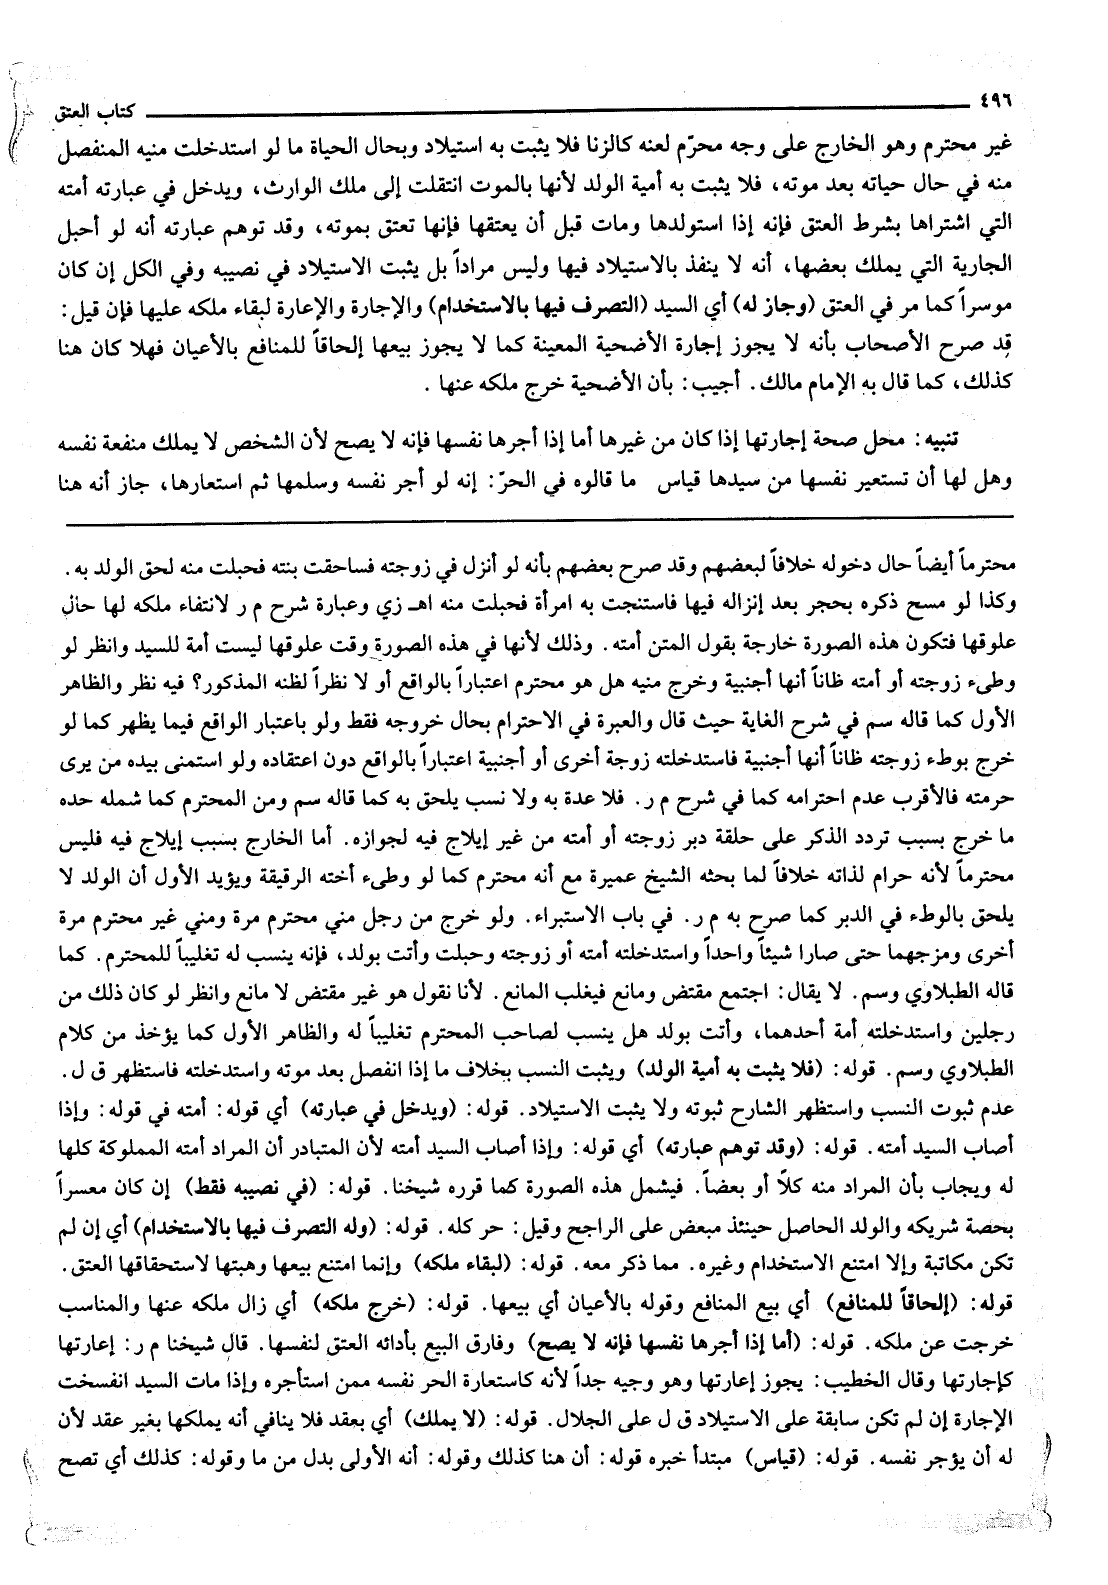 ٤٩٦
كتاب العتق
غير محترم وهو الخارج على وجه محرّم لعنه كالزنا فلا يثبت به استيلاد وبحال الحياة ما لو استدخلت منيه المنفصل
منه في حال حياته بعد موته، فلا يثبت به أمية الولد لأنها بالموت انتقلت إلى ملك الوارث، ويدخل في عبارته أمته
التي اشتراها بشرط العتق فإنه إذا استولدها ومات قبل أن يعتقها فإنها تعتق بموته، وقد توهم عبارته أنه لو أحبل
الجارية التي يملك بعضها، أنه لا ينفذ بالاستيلاد فيها وليس مراداً بل يثبت الاستيلاد في نصيبه وفي الكل إن كان
موسراً كما مر في العتق (وجاز له) أي السيد (التصرف فيها بالاستخدام) والإجارة والإعارة لبقاء ملكه عليها فإن قيل:
قد صرح الأصحاب بأنه لا يجوز إجارة الأضحية المعينة كما لا يجوز بيعها إلحاقاً للمنافع بالأعيان فهلا كان هنا
كذلك، كما قال به الإمام مالك. أجيب: بأن الأضحية خرج ملكه عنها.
تنبيه: محل صحة إجارتها إذا كان من غيرها أما إذا أجرها نفسها فإنه لا يصح لأن الشخص لا يملك منفعة نفسه
وهل لها أن تستعير نفسها من سيدها قياس ما قالوه في الحرّ: إنه لو أجر نفسه وسلمها ثم استعارها، جاز أنه هنا
محترماً أيضاً حال دخوله خلافاً لبعضهم وقد صرح بعضهم بأنه لو أنزل في زوجته فساحقت بنته فحبلت منه لحق الولد به.
وكذا لو مسح ذكره بحجر بعد إنزاله فيها فاستنجت به امرأة فحبلت منه اهـ زي وعبارة شرح م ر لانتفاء ملكه لها حال
علوقها فتكون هذه الصورة خارجة بقول المتن أمته. وذلك لأنها في هذه الصورة وقت علوقها ليست أمة للسيد وانظر لو
وطىء زوجته أو أمته ظاناً أنها أجنبية وخرج منيه هل هو محترم اعتباراً بالواقع أو لا نظراً لظنه المذكور؟ فيه نظر والظاهر
الأول كما قاله سم في شرح الغاية حيث قال والعبرة في الاحترام بحال خروجه فقط ولو باعتبار الواقع فيما يظهر كما لو
خرج بوطء زوجته ظاناً أنها أجنبية فاستدخلته زوجة أخرى أو أجنبية اعتباراً بالواقع دون اعتقاده ولو استمنى بيده من يرى
حرمته فالأقرب عدم احترامه كما في شرح م ر. فلا عدة به ولا نسب يلحق به كما قاله سم ومن المحترم كما شمله حده
ما خرج بسبب تردد الذكر على حلقة دبر زوجته أو أمته من غير إيلاج فيه لجوازه. أما الخارج بسبب إيلاج فيه فليس
محترماً لأنه حرام لذاته خلافاً لما بحثه الشيخ عميرة مع أنه محترم كما لو وطىء أخته الرقيقة ويؤيد الأول أن الولد لا
يلحق بالوطء في الدبر كما صرح به م ر. في باب الاستبراء. ولو خرج من رجل مني محترم مرة ومني غير محترم مرة
أخرى ومزجهما حتى صارا شيئاً واحداً واستدخلته أمته أو زوجته وحبلت وأتت بولد، فإنه ينسب له تغليباً للمحترم. كما
قاله الطبلاوي وسم. لا يقال: اجتمع مقتض ومانع فيغلب المانع. لأنا نقول هو غير مقتض لا مانع وانظر لو كان ذلك من
رجلين واستدخلته أمة أحدهما، وأتت بولد هل ينسب لصاحب المحترم تغليباً له والظاهر الأول كما يؤخذ من كلام
الطبلاوي وسم. قوله: (فلا يثبت به أمية الولد) ويثبت النسب بخلاف ما إذا انفصل بعد موته واستدخلته فاستظهر ق ل.
عدم ثبوت النسب واستظهر الشارح ثبوته ولا يثبت الاستيلاد. قوله: (ويدخل في عبارته) أي قوله: أمته في قوله: وإذا
أصاب السيد أمته. قوله: (وقد توهم عبارته) أي قوله: وإذا أصاب السيد أمته لأن المتبادر أن المراد أمته المملوكة كلها
له ويجاب بأن المراد منه كلاً أو بعضاً. فيشمل هذه الصورة كما قرره شيخنا. قوله: (في نصيبه فقط) إن كان معسراً
بحصة شريكه والولد الحاصل حينئذ مبعض على الراجح وقيل: حر كله. قوله: (وله التصرف فيها بالاستخدام) أي إن لم
تكن مكاتبة وإلا امتنع الاستخدام وغيره. مما ذكر معه. قوله: (لبقاء ملكه) وإنما امتنع بيعها وهبتها لاستحقاقها العتق.
قوله: (إلحاقاً للمنافع) أي بيع المنافع وقوله بالأعيان أي بيعها. قوله: (خرج ملكه) أي زال ملكه عنها والمناسب
خرجت عن ملكه. قوله: (أما إذا أجرها نفسها فإنه لا يصح) وفارق البيع بأدائه العتق لنفسها. قال شيخنا م ر: إعارتها
كإجارتها وقال الخطيب: يجوز إعارتها وهو وجيه جداً لأنه كاستعارة الحر نفسه ممن استأجره وإذا مات السيد انفسخت
الإجارة إن لم تكن سابقة على الاستيلاد ق ل على الجلال. قوله: (لا يملك) أي بعقد فلا ينافي أنه يملكها بغير عقد لأن
له أن يؤجر نفسه. قوله: (قياس) مبتدأ خبره قوله: أن هنا كذلك وقوله: أنه الأولى بدل من ما وقوله: كذلك أي تصح